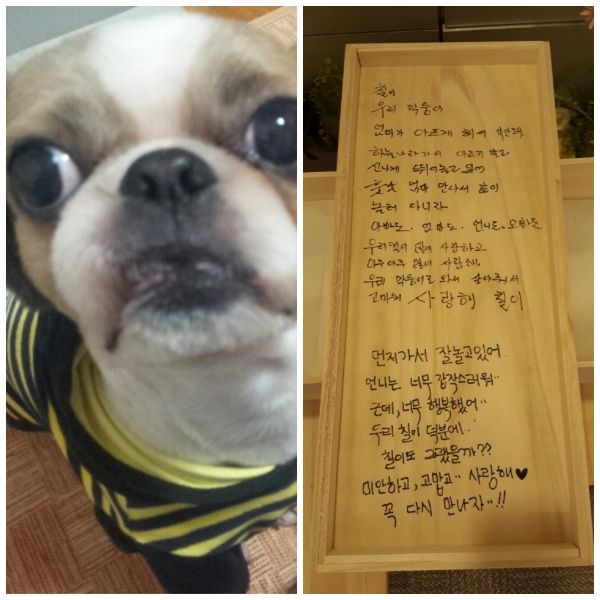 칠이
우리 막둥이
엄마가 아프게 해서 미안해
하늘나라 가서 아프지 말고
신나게 뛰어놀고 있어
훗날 엄마 만나서 같이
놀러 다니자
아빠도. 엄마도. 언니도. 오빠도
우리 많이 사랑하고
아주아주 많이 사랑해.
우리 막둥이로 와서 살아줘서
고마워 사랑해 칠이
먼저가서 잘놀고있어
언니는 너무 갑작스러워..
근데, 너무 행복했어..
우리 칠이 덕분에..
칠이도 그랬을까??
미안하고, 고맙고.. 사랑해♥
꼭 다시 만나자..!!